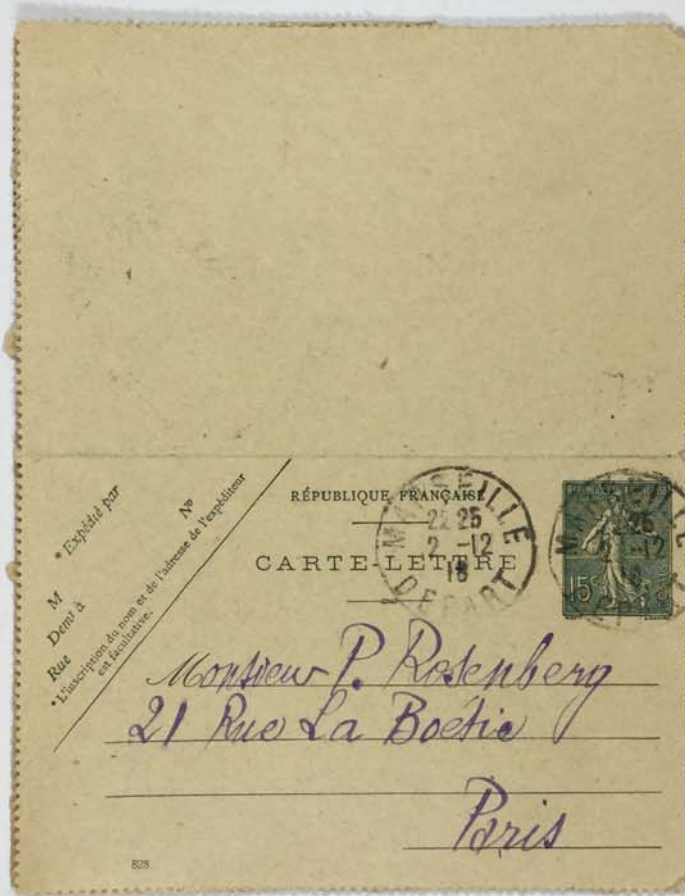 * Expédié par
M
Demt à
Rue
Nº
*L'inscription du nom et de l'adresse de l'expéditeur
est facultative.
RÉPUBLIQUE FRANÇAISE
CARTE-LETTRE
MARSEILLE
22 25
2 -12
18
DEPART
MARSEILLE
25
2 -12
18
DEPART
15c
Monsieur P. Rosenberg
21 Rue La Boétie
Paris
828